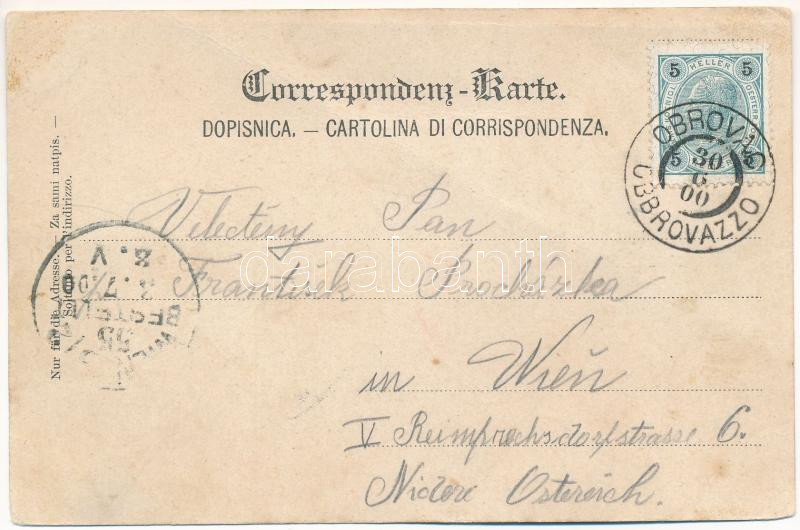 Correspondenz-Karte.
DOPISNICA. — CARTOLINA DI CORRISPONDENZA.
Nur für die Adresse. — Za sami natpis. —
Soltanto per l'indirizzo.
5 HELLER 5
5 5
OBROVAC
30
6
00
OBBROVAZZO
Velectěny Pan
František Procházka
in Wien
V Reimprechsdorfstrasse 6.
Nidere Ostereich.
WIEN
BESTELLT
8. V
3. 7
darabanth